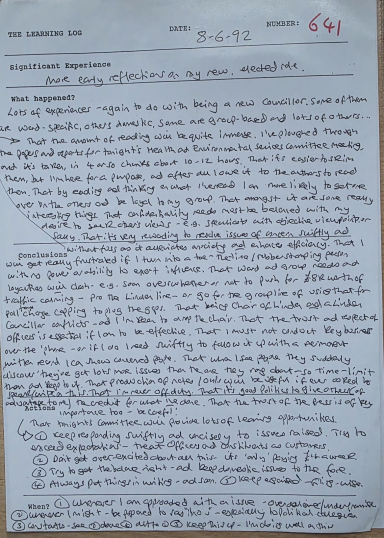 THE LEARNING LOG DATE: 8-6-92 NUMBER: 641
Significant Experience
More early reflections on my new, elected role.
What happened?
Lots of experiences - again to do with being a new Councillor. Some of them
are ward-specific, others domestic. Some are group-based and lots of others...
That the amount of reading will be quite immense. I've ploughed through
the papers and reports for tonight's Health and Environmental Services Committee meeting,
and it's taken, in 4 or so chunks about 10-12 hours. That it's easier to skim
them, but I'm here for a purpose, and after all I owe it to the authors to read
them. That by reading and thinking on what I've read I am more likely to
over on the others and be loyal to my group. That amongst it are some really
interesting things. That confidentiality needs must be balanced with my
desire to seek others' views - e.g. specialists with objective viewpoints or
That it's very rewarding to resolve issues of concern swiftly and
without fuss as it alleviates anxiety and enhances efficiency. That I
Conclusions
will get really frustrated if I turn into a toe-the-line / rubber stamping person
with no power or ability to exert influence. That ward and group needs and
loyalties will clash - e.g. soon over whether or not to push for worth of
traffic calming - pro the Linden line - or go for the group line of using that for
poll charge capping to plug the gaps. That being Chair of Linden and a Linden
Councillor conflicts - and I'm keen to drop the Chair. That the trust and respect of
officers is essential if I am to be effective. That I must not conduct key business
over the 'phone - or if I do I need swiftly to follow it up with a
written record I can show concerned people. That when I see people they suddenly
discover they've got lots more issues than the one they rang about - so time-limit
them and keep to it. That production of notes would be useful if ever asked to
That I'm never off duty. That it's good politics to give others
the credit for what I've done. That the trust of the press is of key
Actions importance too - be careful!
That tonight's Committee will provide lots of learning opportunities.
① Keep responding swiftly and concisely to issues raised. Try to
exceed expectations - treat officers and constituents as customers
② Don't get over-excited about all this - it's 'only' paying a week
③ Try to get the balance right - and keep domestic issues to the fore.
④ Always put things in writing - and soon. ⑤ Keep organised - filing-wise.
When? ① Whenever I am approached with an issue -
② Whenever I might be tempted to say 'no' - especially to political colleagues
③ Constants - see ② above ④ ditto ⑤ Keep this up - I'm doing well within